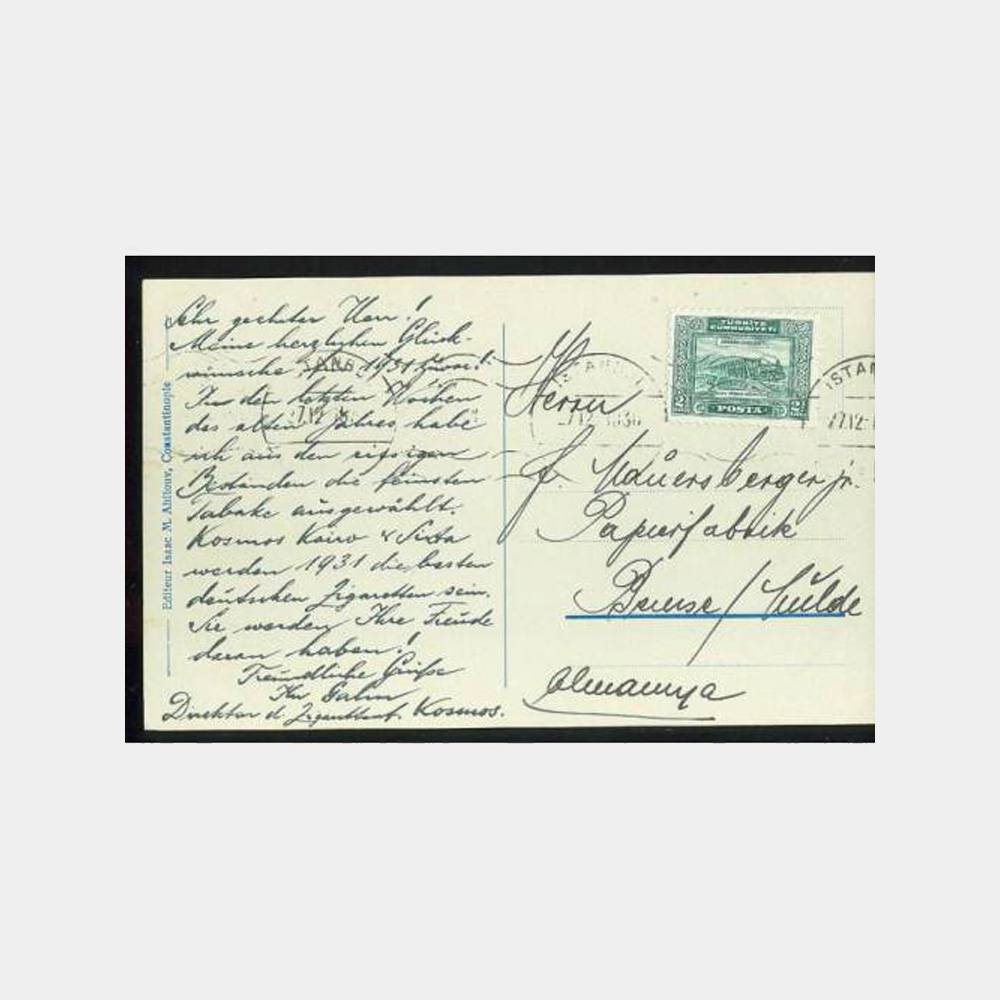 Sehr geehrter Herr!
Meine herzlichen Glück-
wünsche zu 1931 zuvor!
In den letzten Wochen
des alten Jahres habe
ich aus den riesigen
Beständen die feinsten
Tabake ausgewählt.
Kosmos Kairo &
werden 1931 die besten
deutschen Zigaretten sein.
Sie werden Ihre Freude
daran haben!
Freundliche Grüße
Ihr
Direktor d. Zigarettenf. Kosmos.
Editeur Isaac M. Ahitouv, Constantinople
TÜRKİYE
CUMHURİYETİ
POSTA
ISTANBUL
27.12.1930
ISTAN
27.12.1
Herrn
F. Mauersberger jr.
Papierfabrik
Almanya